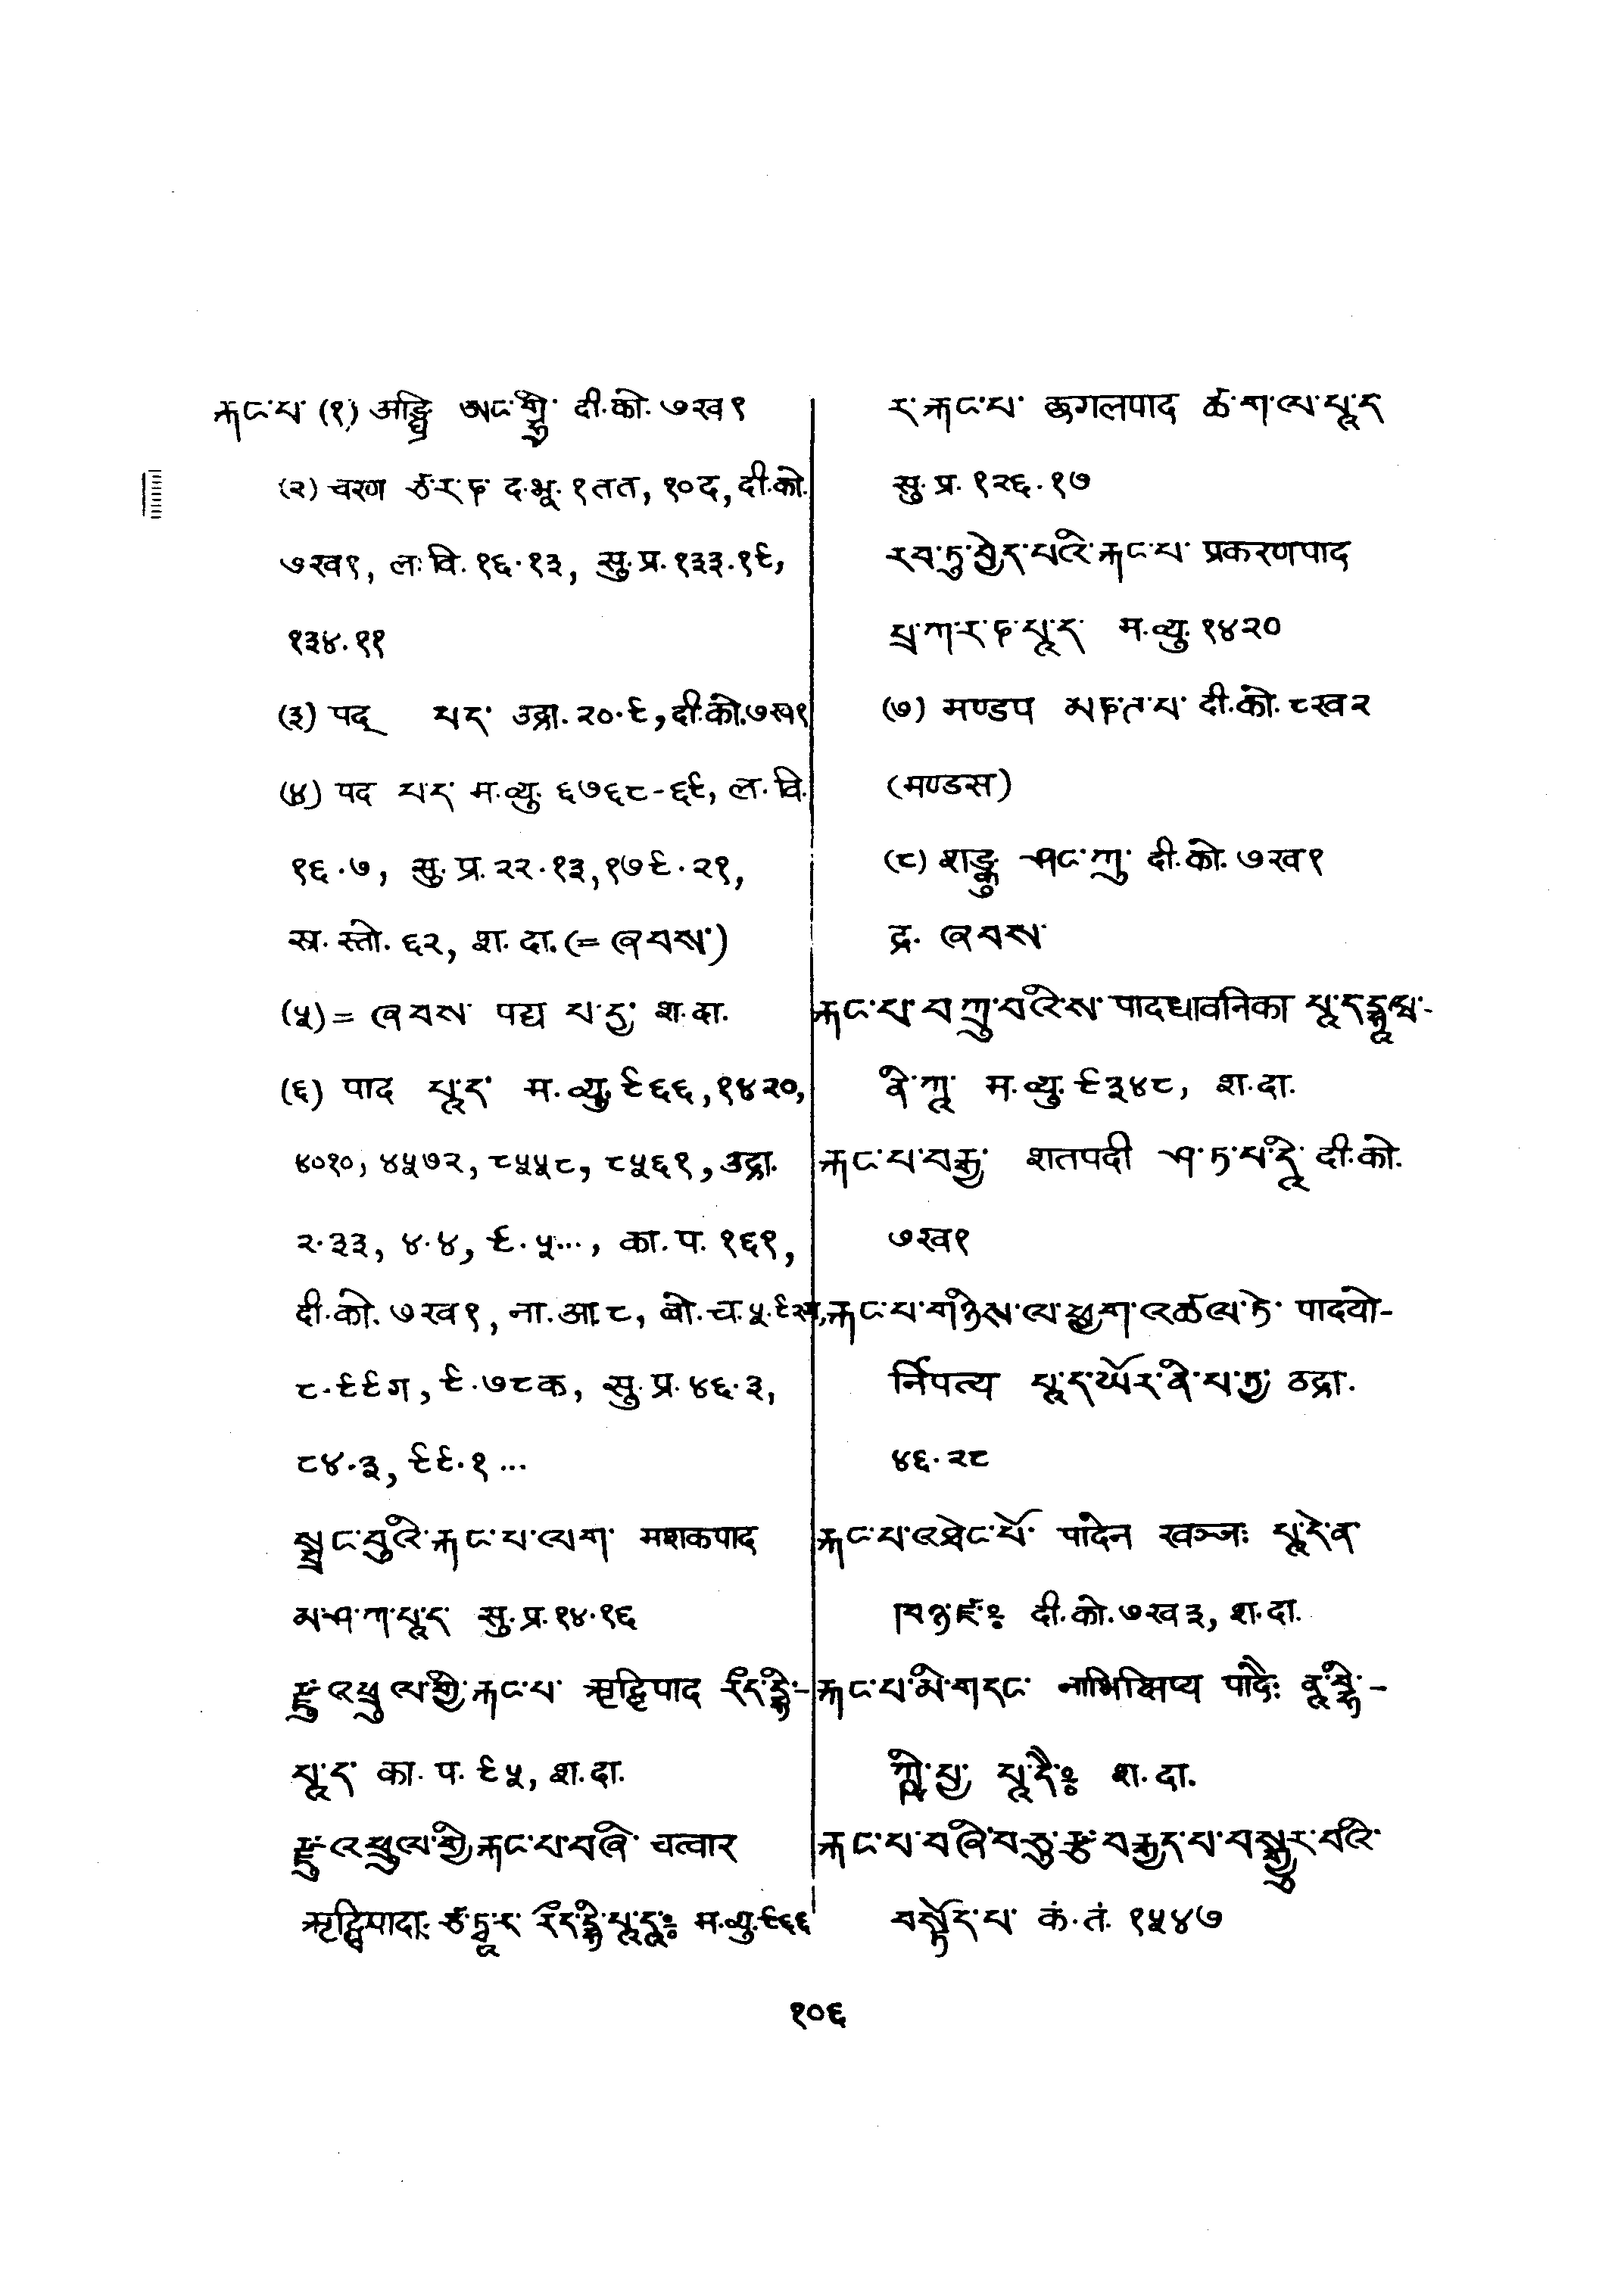 རྐང་པ་ (१) अङ्घ्रि ཨང་གྷྲི་ दी.को. ७ख१
(२) चरण ཙ་ར་ཎ द.भू. १तत, १०द, दी.को.
७ख१, ल. वि. १६.१३, सु.प्र. १३३.१९,
१३४.११
(३) पद् པད་ उद्रा. २०.९, दी.को. ७ख१
(४) पद པ་ད་ म.व्यु. ६७६८-६९, ल. वि.
१६.७, सु.प्र. २२.१३, १७९.२१,
स्र. स्तो. ६२, श. दा. (= ཞབས་)
(५) = ཞབས་ पद्य པ་དྱ་ श.दा.
(६) पाद པཱ་ད་ म.व्यु. ९६६, १४२०,
४०१०, ४५७२, ८५५८, ८५६१, उद्रा.
२.३३, ४.४, ९.५..., का. प. १६१,
दी.को. ७ख१, ना.आ. ८, बो.च. ५.
८.९९ग, ९.७८क, सु.प्र. ४६.३,
८४.३, ९९.१ ...
སྦྲང་བུའི་རྐང་པ་ལག་ मशकपाद
མ་ཤ་ཀ་པཱ་ད་ सु.प्र. १४.१६
རྫུ་འཕྲུལ་གྱི་རྐང་པ་ ऋद्धिपाद རྀད་དྷི་-
པཱ་ད་ का. प. ९५, श.दा.
རྫུ་འཕྲུལ་གྱི་རྐང་པ་བཞི་ चत्वार
ऋद्धिपादाः ཙ་ཏྭཱ་ར་ རྀད་དྷི་པཱ་དཱཿ म.व्यु. ९६६
ར་རྐང་པ་ छगलपाद ཚ་ག་ལ་པཱ་ད
सु. प्र. १२६.१७
རབ་ཏུ་བྱེད་པའི་རྐང་པ་ प्रकरणपाद
པྲ་ཀ་ར་ཎ་པཱ་ད་ म.व्यु. १४२०
(७) मण्डप མཎ་ཌ་པ་ दी.को. ८ख२
(मण्डस)
(८) शङ्कु ཤང་ཀུ་ दी.को. ७ख१
द्र. ཞབས་
རྐང་པ་བཀྲུ་བའི་ས་ पादधावनिका པཱ་ད་དྷཱ་ཝ་-
ནི་ཀཱ་ म.व्यु. ९३४८, श.दा.
རྐང་པ་བརྒྱ་ शतपदी ཤ་ཏ་པ་དཱི་ दी.को.
७ख१
རྐང་པ་གཉིས་ལ་ཕྱག་འཚལ་ཏེ་ पादयो-
र्निपत्य པཱ་ད་ཡོར་ནི་པ་ཏྱ་ उद्रा.
४६.२८
རྐང་པ་འཐེང་པོ་ पादेन खञ्जः པཱ་དེ་ན་
ཁཉ་ཛཿ दी.को. ७ख३, श.दा.
རྐང་པ་མི་གདང་ नाभिक्षिप्य पादैः ནཱ་བྷི་-
ཀྵི་པྱ་ པཱ་དཻཿ श.दा.
རྐང་པ་བཞི་བཅུ་རྩ་བརྒྱད་པ་བསྒྱུར་བའི་
བསྟོད་པ་ कं.तं. १५४७
१०६